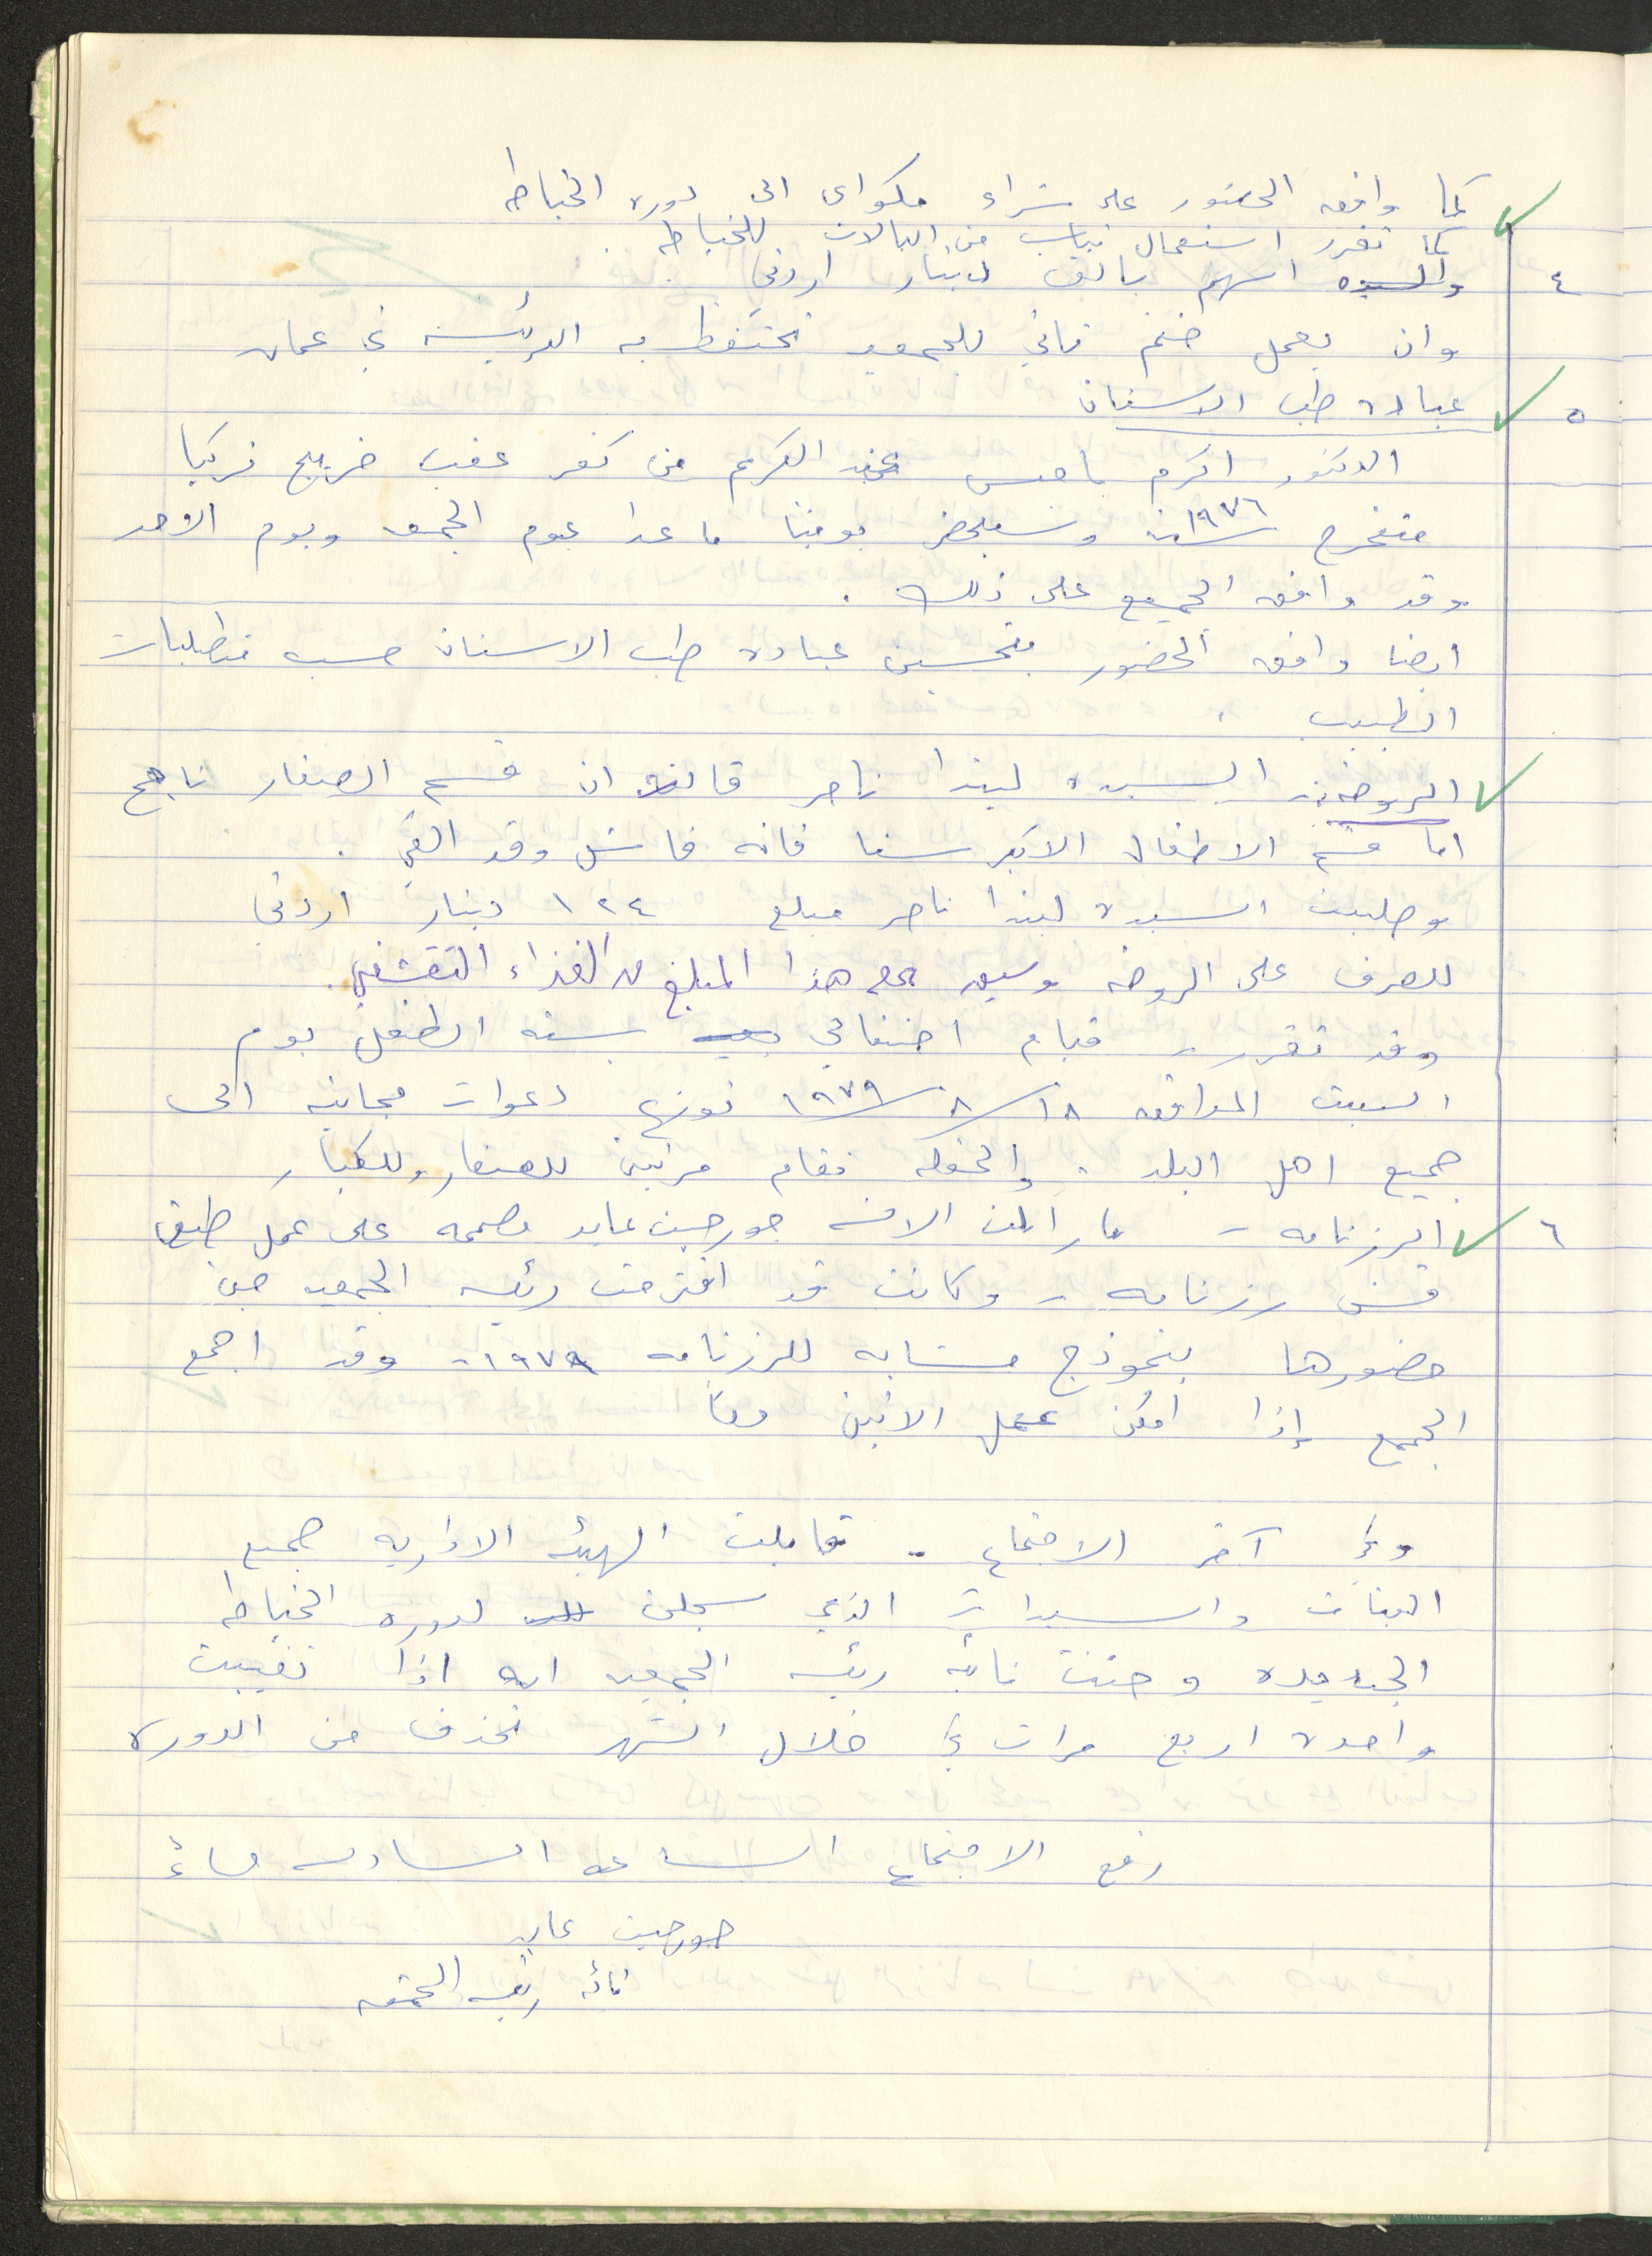 كما وافق الحضور على شراء مكواى الى دورة الخياطه
كما تقرر استعمال ثياب من البالات للخياطه.
٤ اسهم بالف دينار اردني
وان يعمل ختم ثاني للجمعيه تحتفظ به الرئيسه في عمان
٥ عيادة طب الاسنان
الدكتور اكرم عبد الكريم من كفر عقب خريج تركيا
متخرج سنة ١٩٧٦ وسيحضر يوميا ما عدا يوم الجمعه ويوم الاحد
وقد وافق الجميع على ذلك.
ايضا وافق الحضور بتحسين عيادة طب الاسنان حسب متطلبات
الطبيب.
الروضه:- السيده ليندا ناصر قالت ان قسم الصغار ناجح
اما قسم الاطفال الاكبر سنا فانه فاشل وقد الغي.
وطلبت السيدة ليندا ناصر مبلغ ١٢٤ دينار اردني
للصرف على الروضه هذا المبلغ من الغذاء التقشفي.
وقد تقرر قيام احتفالي بسنه الطفل يوم
السبت الموافق ١٨/٨/١٩٧٩ توزع دعوات مجانيه الى
جميع اهل البلد. والحفله تقام مرتين للصغار وللكبار
٦ الرزنامه - ما زالت الانسه جورجيت عابد مصممه على عمل طبق
قش رزنامه - وكانت قد اقترحت رئيسه الجمعيه حين
حضورها بنموذج مشابه للرزنامه ١٩٧٩- وقد اجمع
الجميع إذا امكن عمل الاثنين معا
وفي آخر الاجتماع - قابلت الهيئه الاداريه جميع
البنات والسيدات الذي سجلن لدورة الخياطه
الجديده وحثت نائبه رئيسه الجمعيه انه اذا تغيبت
واحدة اربع مرات في خلال الشهر تحذف من الدوره
رفع الاجتماع الساعه السادسه مساءً
جورجيت عابد
نائبه رئيسه الجمعيه